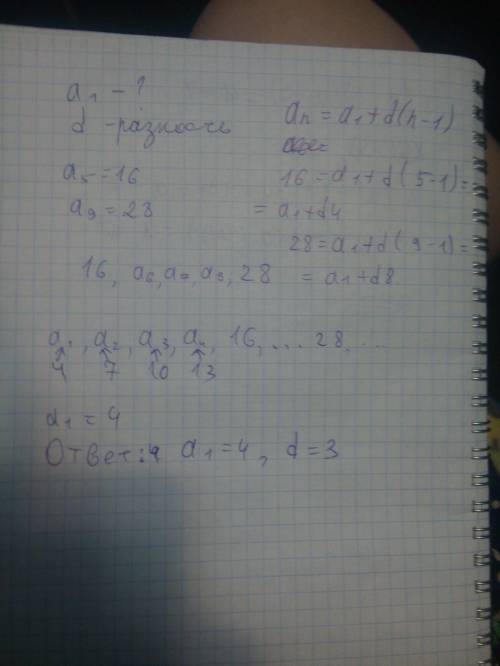 a₁ – ?
d - разность
aₙ = a₁ + d(n-1)
a₅ = 16
16 = a₁ + d(5-1) =
a₉ = 28
= a₁ + d4
28 = a₁ + d(9-1) =
16, a₆, a₇, a₈, 28
= a₁ + d8
a₁, a₂, a₃, a₄, 16, ... 28, ...
↑ ↑ ↑ ↑
4 7 10 13
a₁ = 4
Ответ: a₁ = 4, d = 3